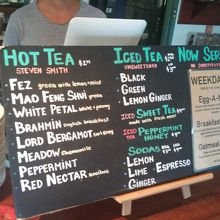 HOT TEA
STEVEN SMITH
FEZ green with lemon + mint
MAO FENG SHUI green
WHITE PETAL
BRAHMIN english breakfast
LORD BERGAMOT earl grey
MEADOW chamomile
PEPPERMINT
RED NECTAR rooibos
ICED TEA
UNSWEETENED
BLACK
GREEN
LEMON GINGER
ICED SWEET TEA
made with fresh mint
ICED PEPPERMINT
HONEY
SODAS
LEMON
LIME ESPRESSO
GINGER
NOW SER
WEEKDA
Egg
Breakfast
Oatmeal